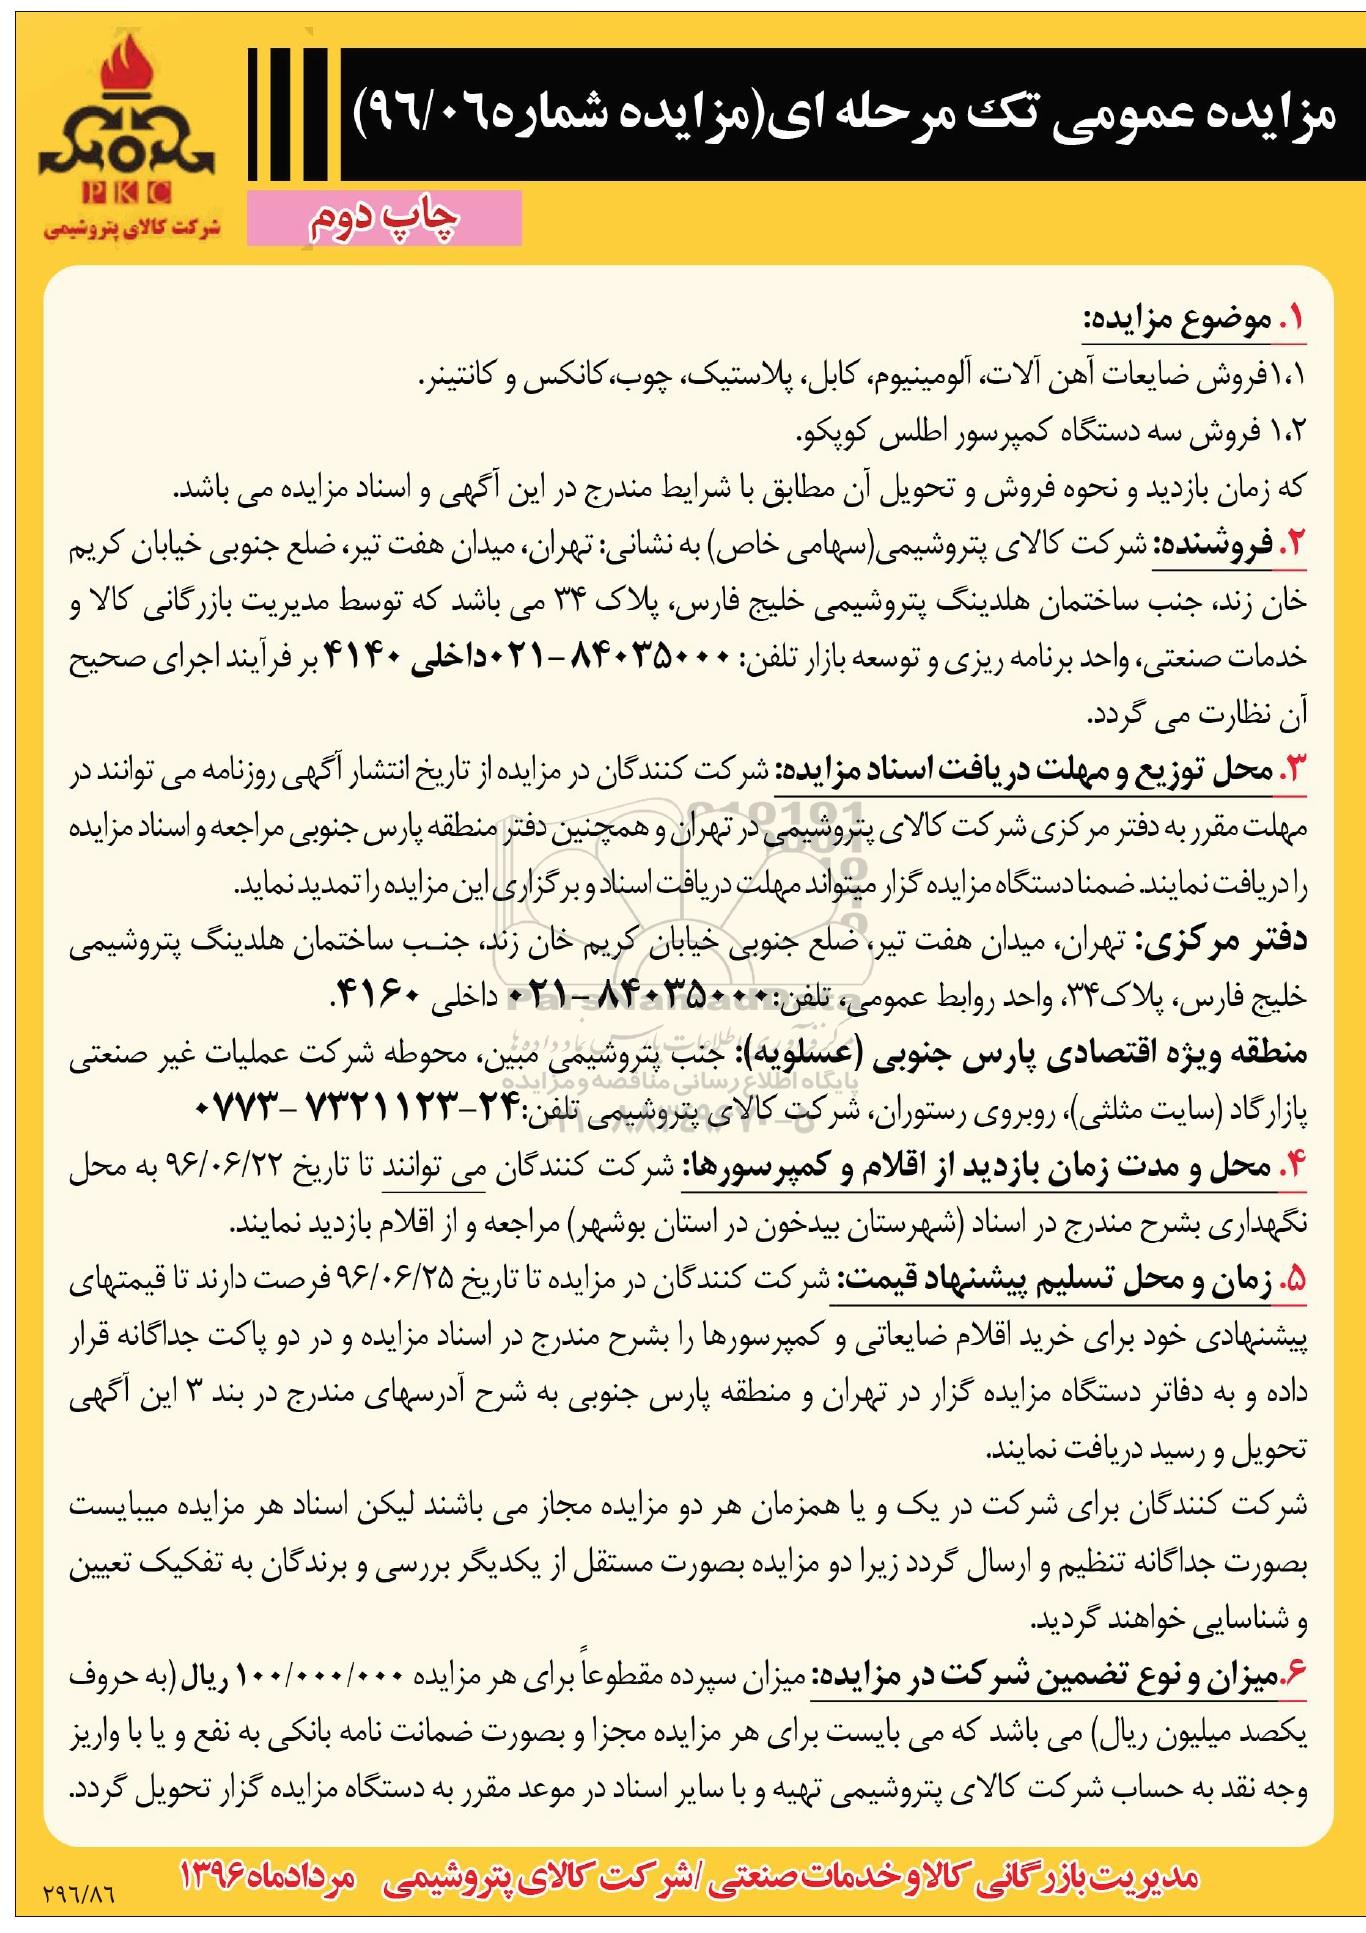 مزایده عمومی تک مرحله ای(مزایده شماره ۹۶/۰۶)
چاپ دوم
PKC
شرکت کالای پتروشیمی
۱. موضوع مزایده:
۱،۱فروش ضایعات آهن آلات، آلومینیوم، کابل، پلاستیک، چوب،کانکس و کانتینر.
۱،۲ فروش سه دستگاه کمپرسور اطلس کوپکو.
که زمان بازدید و نحوه فروش و تحویل آن مطابق با شرایط مندرج در این آگهی و اسناد مزایده می باشد.
۲. فروشنده: شرکت کالای پتروشیمی(سهامی خاص) به نشانی: تهران، میدان هفت تیر، ضلع جنوبی خیابان کریم
خان زند، جنب ساختمان هلدینگ پتروشیمی خلیج فارس، پلاک ۳۴ می باشد که توسط مدیریت بازرگانی کالا و
خدمات صنعتی، واحد برنامه ریزی و توسعه بازار تلفن: ۸۴۰۳۵۰۰۰-۰۲۱داخلی ۴۱۴۰ بر فرآیند اجرای صحیح
آن نظارت می گردد.
۳. محل توزیع و مهلت دریافت اسناد مزایده: شرکت کنندگان در مزایده از تاریخ انتشار آگهی روزنامه می توانند در
مهلت مقرر به دفتر مرکزی شرکت کالای پتروشیمی در تهران و همچنین دفتر منطقه پارس جنوبی مراجعه و اسناد مزایده
را دریافت نمایند. ضمنا دستگاه مزایده گزار میتواند مهلت دریافت اسناد و برگزاری این مزایده را تمدید نماید.
دفتر مرکزی: تهران، میدان هفت تیر، ضلع جنوبی خیابان کریم خان زند، جنب ساختمان هلدینگ پتروشیمی
خلیج فارس، پلاک۳۴، واحد روابط عمومی، تلفن:۸۴۰۳۵۰۰۰-۰۲۱ داخلی ۴۱۶۰.
ParsNamadData
منطقه ویژه اقتصادی پارس جنوبی (عسلویه): جنب پتروشیمی مبین، محوطه شرکت عملیات غیر صنعتی
پایگاه اطلاع رسانی مناقصه و مزایده
پازارگاد (سایت مثلثی)، روبروی رستوران، شرکت کالای پتروشیمی تلفن:۲۴-۷۳۲۱۱۲۳ -۰۷۷۳
۴. محل و مدت زمان بازدید از اقلام و کمپرسورها: شرکت کنندگان می توانند تا تاریخ ۹۶/۰۶/۲۲ به محل
نگهداری بشرح مندرج در اسناد (شهرستان بیدخون در استان بوشهر) مراجعه و از اقلام بازدید نمایند.
۵. زمان و محل تسلیم پیشنهاد قیمت: شرکت کنندگان در مزایده تا تاریخ ۹۶/۰۶/۲۵ فرصت دارند تا قیمتهای
پیشنهادی خود برای خرید اقلام ضایعاتی و کمپرسورها را بشرح مندرج در اسناد مزایده و در دو پاکت جداگانه قرار
داده و به دفاتر دستگاه مزایده گزار در تهران و منطقه پارس جنوبی به شرح آدرسهای مندرج در بند ۳ این آگهی
تحویل و رسید دریافت نمایند.
شرکت کنندگان برای شرکت در یک و یا همزمان هر دو مزایده مجاز می باشند لیکن اسناد هر مزایده میبایست
بصورت جداگانه تنظیم و ارسال گردد زیرا دو مزایده بصورت مستقل از یکدیگر بررسی و برندگان به تفکیک تعیین
و شناسایی خواهند گردید.
۶.میزان و نوع تضمین شرکت در مزایده: میزان سپرده مقطوعاً برای هر مزایده ۱۰۰/۰۰۰/۰۰۰ ریال(به حروف
یکصد میلیون ریال) می باشد که می بایست برای هر مزایده مجزا و بصورت ضمانت نامه بانکی به نفع و یا با واریز
وجه نقد به حساب شرکت کالای پتروشیمی تهیه و با سایر اسناد در موعد مقرر به دستگاه مزایده گزار تحویل گردد.
مدیریت بازرگانی کالا و خدمات صنعتی /شرکت کالای پتروشیمی مردادماه ۱۳۹۶
۲۹۶/۸۶